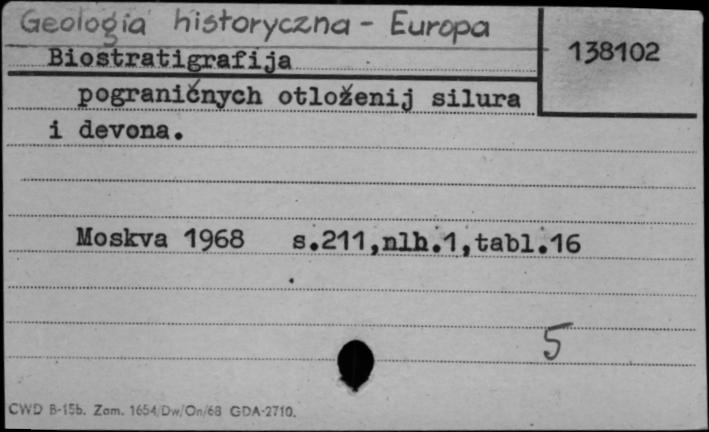 Geologia historyczna - Europa
138102
Biostratigrafija
pograničnych otloženij silura
i devona.
Moskva 1968 s.211,nlb.1,tabl.16
5
CWD B-15b. Zam. 1654/Dw/On/68 GDA-2710.